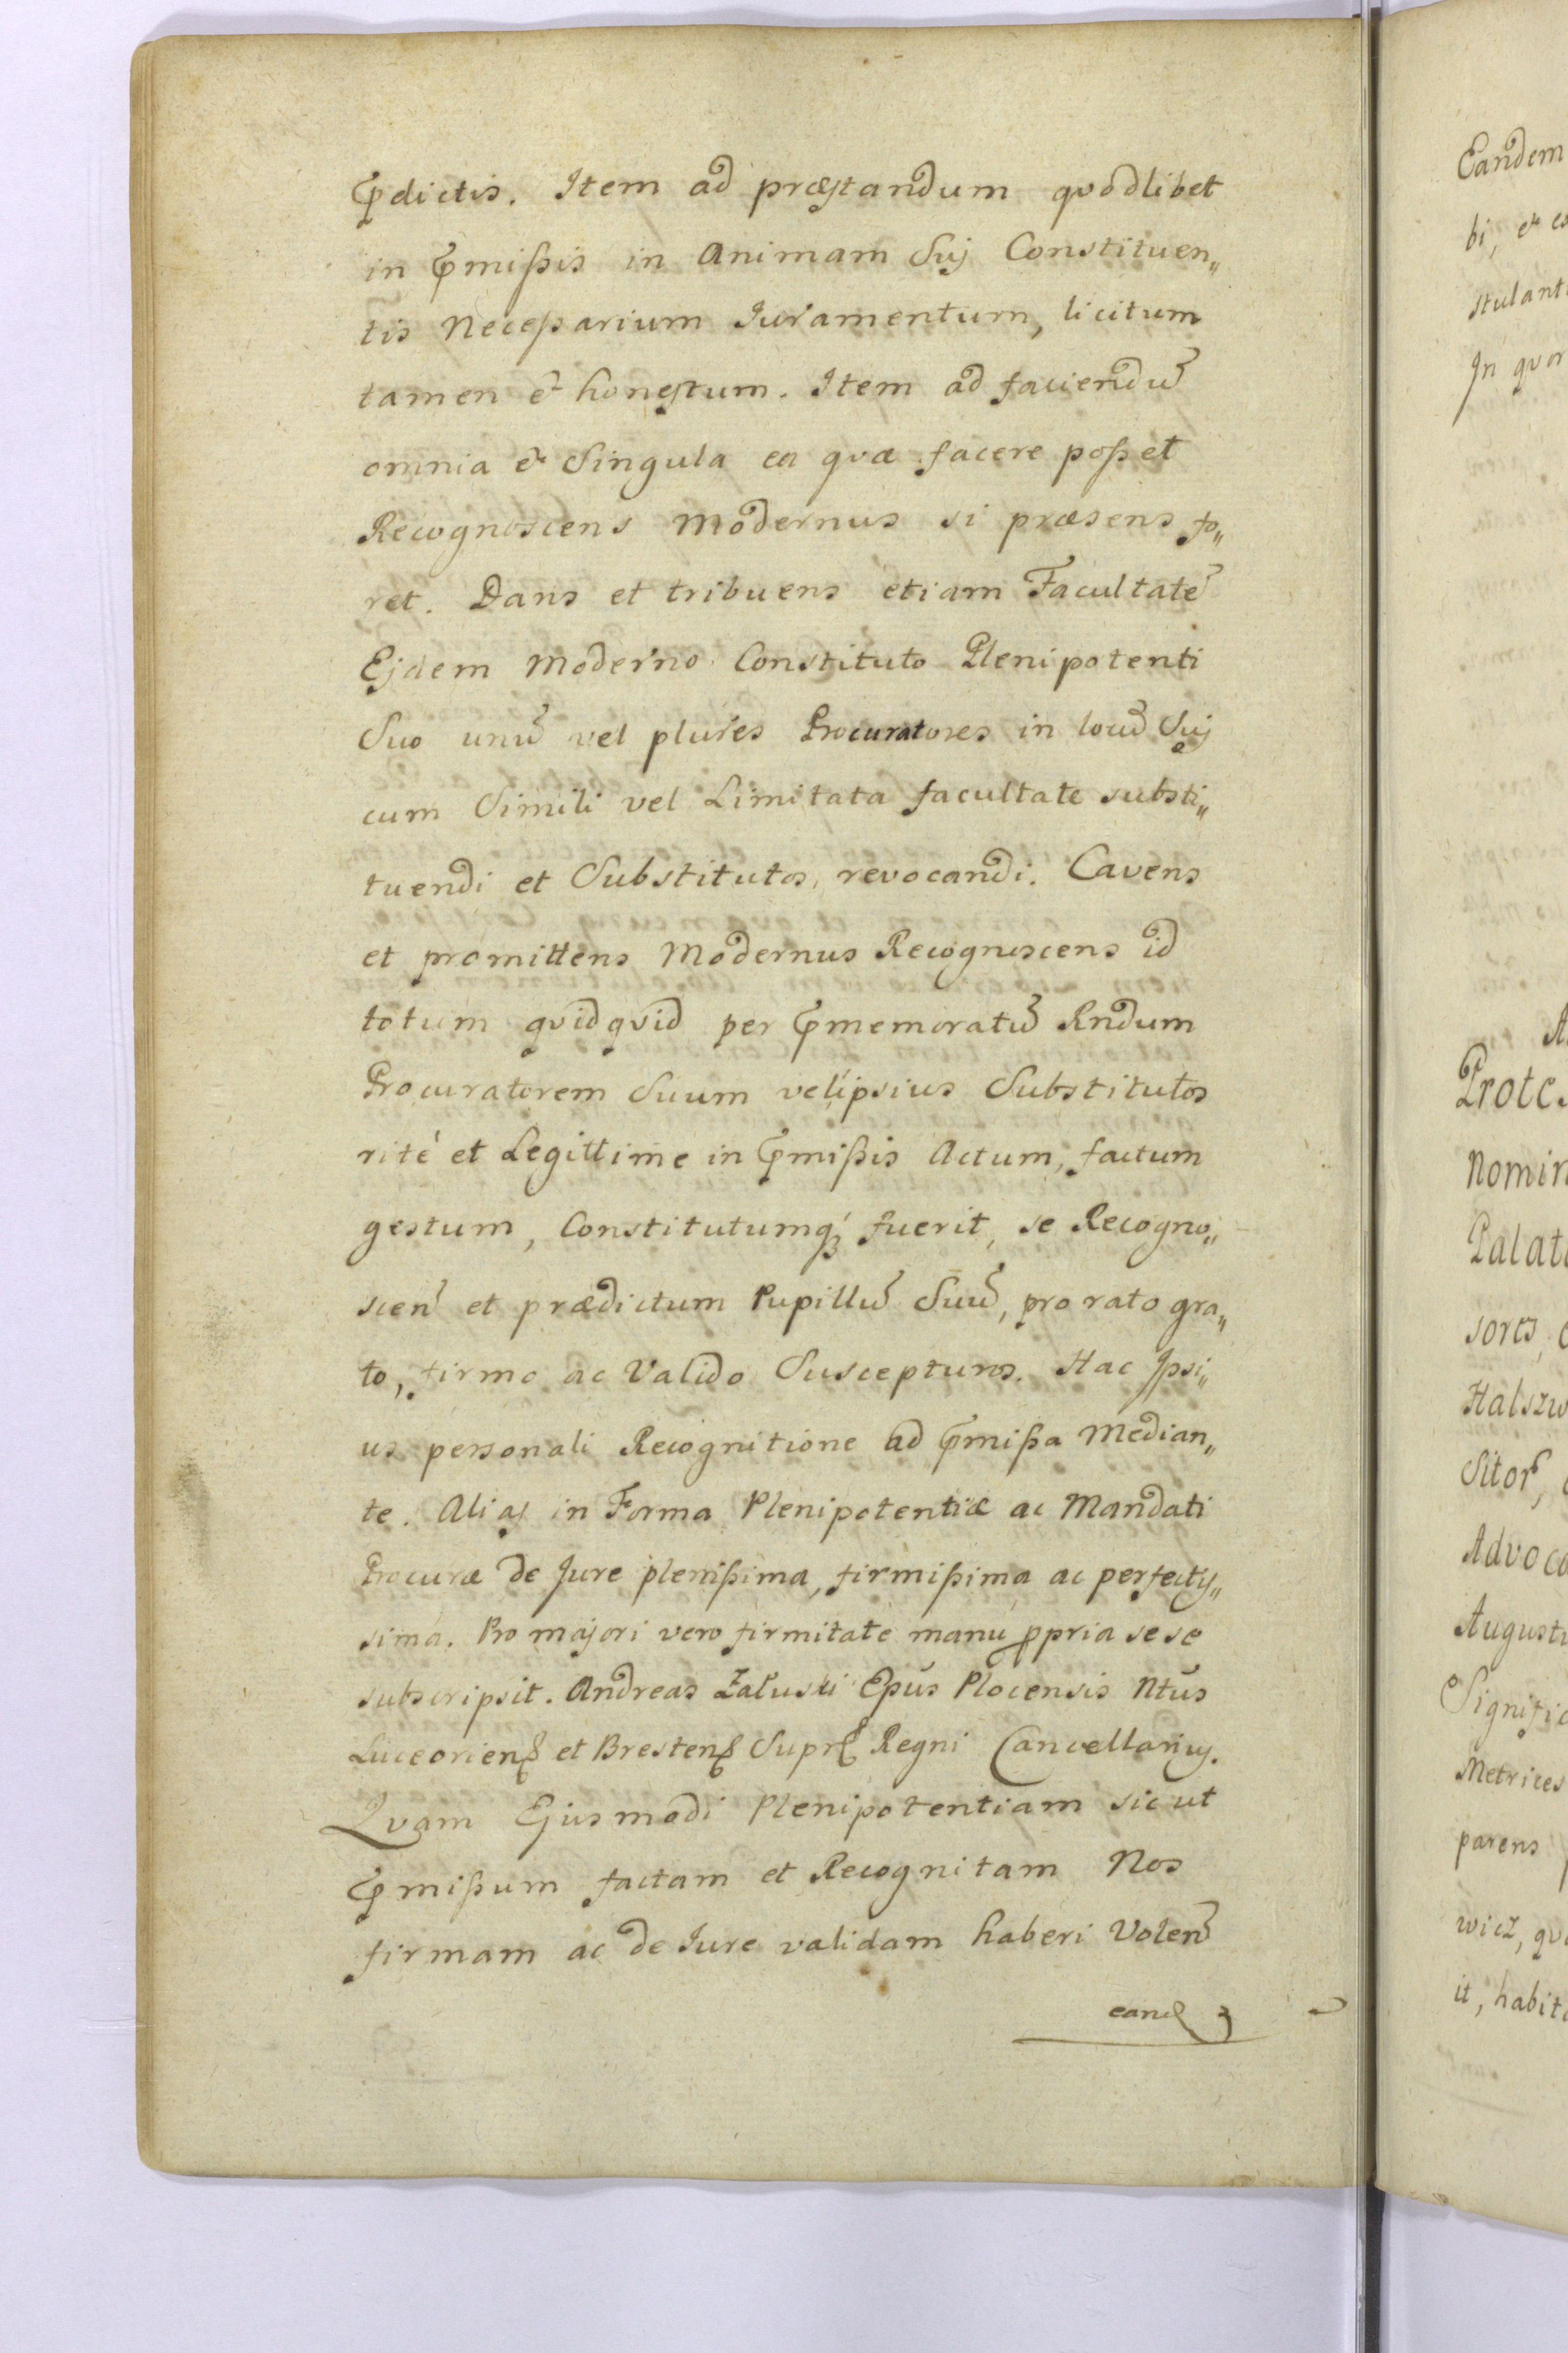 p̃dictis. Item ad præstandum quodlibet
in p̃mißis in Animam Suj Constituen„
tis Neceßarium Juramentum, licitum
tamen & honestum. Item ad faciendū
omnia & Singula ea quæ facere poßet
Recognoscens Modernus si præsens fo„
ret. Dans et tribuens etiam Facultatē
Ejdem Moderno Constituto Plenipotenti
Suo unū vel plures Procuratores in locū Suj
cum Simili vel Limitata facultate substi„
tuendi et Substitutos, revocandi. Cavens
et promittens Modernus Recognoscens id
totum quidquid per p̃memoratū Rndum
Procuratorem Suum vel ipsius Substitutos
rité et Legittime in p̃mißis Actum, factum
gestum, Constitutumq; fuerit, se Recogno„
scen̄ et prædictum Pupillū Suū, pro rato gra„
to, firmo ac Valido Suscepturos. Hac Ipsi„
us personali Recognitione ad p̃mißa Median„
te. Alias in Forma Plenipotentiæ ac Mandati
Procuræ de Jure plenißima, firmißima ac perfectis„
sima. Pro majori vero firmitate manu ppria sese
subscripsit. Andreas Załuski Epūs Plocensis Ntūs
Luceorien̄ et Bresten̄ Supr̄ Regni Cancellarius.
Quam Ejusmodi Plenipotentiam sicut
p̃mißum factam et Recognitam Nos
firmam ac de Jure validam haberi Volen̄
eand
Eandem
bi, &
stulant
In quor
Protes
Nomin
Palat
sores,
Halszw
Sitor,
Advoca
Augusti
Signific
Metrices
parens
wicz, qu
it, habit